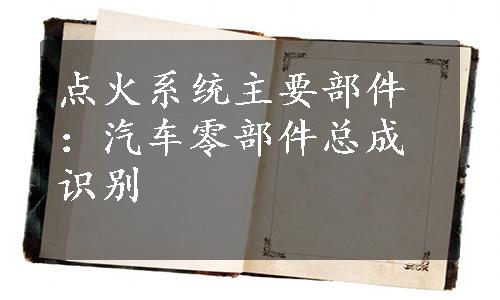 点火系统主要部件
：汽车零部件总成
识别